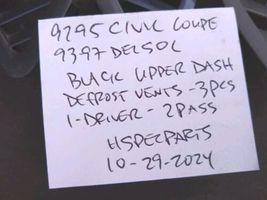 9295 CIVIC COUPE
9397 DELSOL
BLACK UPPER DASH
DEFROST VENTS - 3PCS
1-DRIVER - 2PASS
HSPECPARTS
10-29-2024